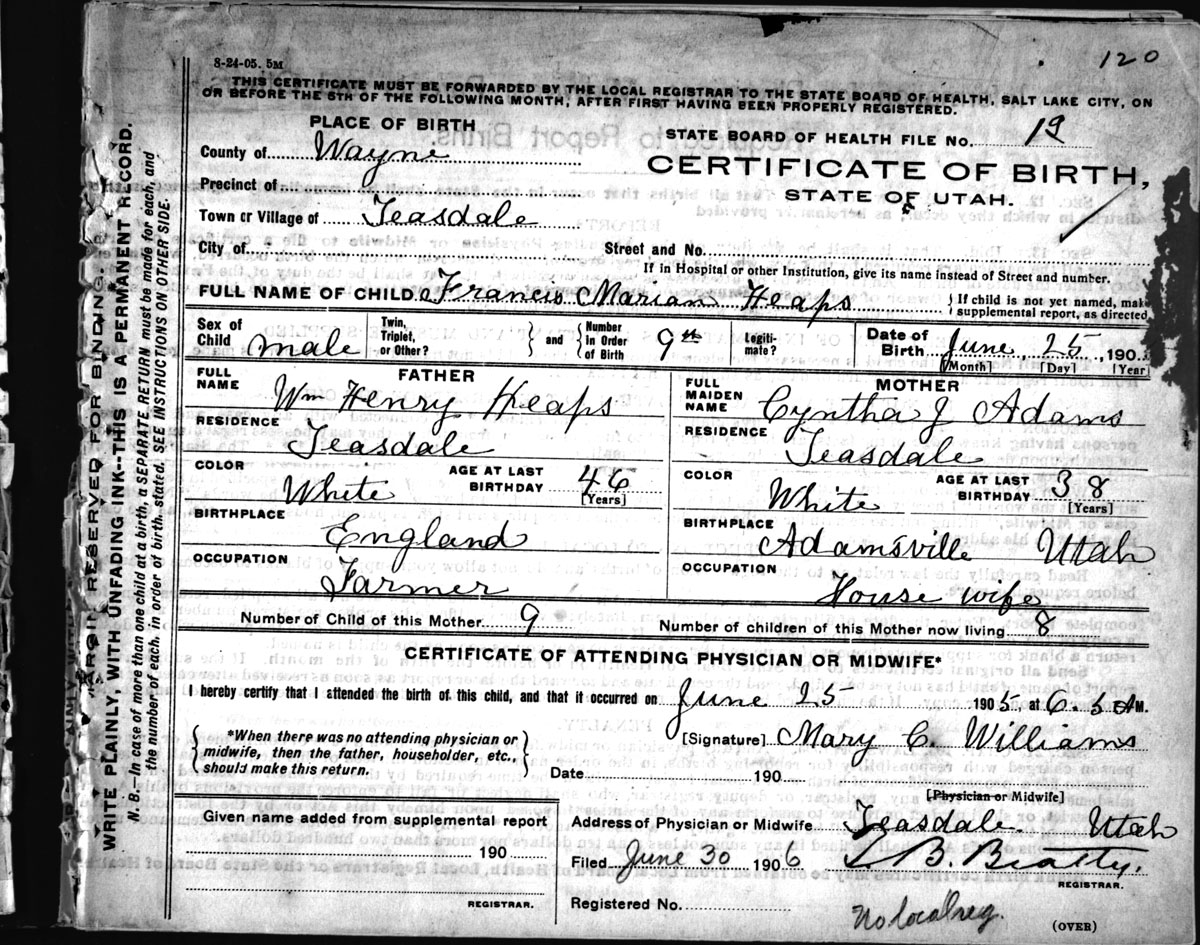 120
8-24-05. 5M
THIS CERTIFICATE MUST BE FORWARDED BY THE LOCAL REGISTRAR TO THE STATE BOARD OF HEALTH, SALT LAKE CITY, ON
OR BEFORE THE 5TH OF THE FOLLOWING MONTH, AFTER FIRST HAVING BEEN PROPERLY REGISTERED.
PLACE OF BIRTH
STATE BOARD OF HEALTH FILE No. 19
County of Wayne
CERTIFICATE OF BIRTH,
Precinct of
STATE OF UTAH.
Town or Village of Teasdale
City of Street and No.
If in Hospital or other Institution, give its name instead of Street and number.
FULL NAME OF CHILD Francis Marian Heaps
{If child is not yet named, make
supplemental report, as directed
Sex of Child male Twin, Triplet, or Other? } and { Number in Order of Birth 9th Legiti-mate? Date of Birth June 25, 190
[Month] [Day] [Year
FATHER
FULL NAME Wm Henry Heaps
RESIDENCE Teasdale
COLOR White AGE AT LAST BIRTHDAY 46 [Years]
BIRTHPLACE England
OCCUPATION Farmer
MOTHER
FULL MAIDEN NAME Cyntha J Adams
RESIDENCE Teasdale
COLOR White AGE AT LAST BIRTHDAY 38 [Years]
BIRTHPLACE Adamsville Utah
OCCUPATION House wife
Number of Child of this Mother 9 Number of children of this Mother now living 8
CERTIFICATE OF ATTENDING PHYSICIAN OR MIDWIFE*
I hereby certify that I attended the birth of this child, and that it occurred on June 25 1905 at 6.5 AM.
{*When there was no attending physician or
midwife, then the father, householder, etc.,
should make this return.}
[Signature] Mary C. Williams
Date 190
[Physician or Midwife]
Given name added from supplemental report
190
REGISTRAR.
Address of Physician or Midwife Teasdale Utah
Filed June 30 1906 B. Beatty.
REGISTRAR.
Registered No.
No local reg.
(OVER)
MARGIN RESERVED FOR BINDING.
WRITE PLAINLY, WITH UNFADING INK--THIS IS A PERMANENT RECORD.
N. B.—In case of more than one child at a birth, a SEPARATE RETURN must be made for each, and
the number of each, in order of birth, stated. SEE INSTRUCTIONS ON OTHER SIDE.